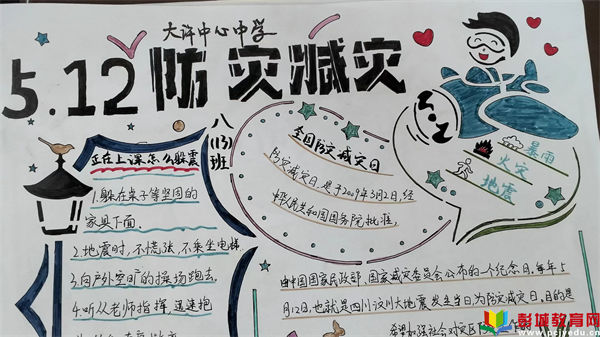 大许中心中学
5.12防灾减灾
八(13)班
正在上课怎么躲震
1.躲在桌子等坚固的
家具下面.
2.地震时,不慌张,不乘坐电梯
3.向户外空旷的操场跑去,
4.听从老师指挥,迅速抱
全国防灾减灾日
防灾减灾日,是于2009年3月2日,经
中华人民共和国国务院批准,
暴雨
火灾
地震
由中国国家民政部,国家减灾委员会公布的一个纪念日,每年5
月12日,也就是四川汶川大地震发生当日为防灾减灾日,目的是
希望加强社会对灾区防
彭城教育网
www.pcjyedu.cn